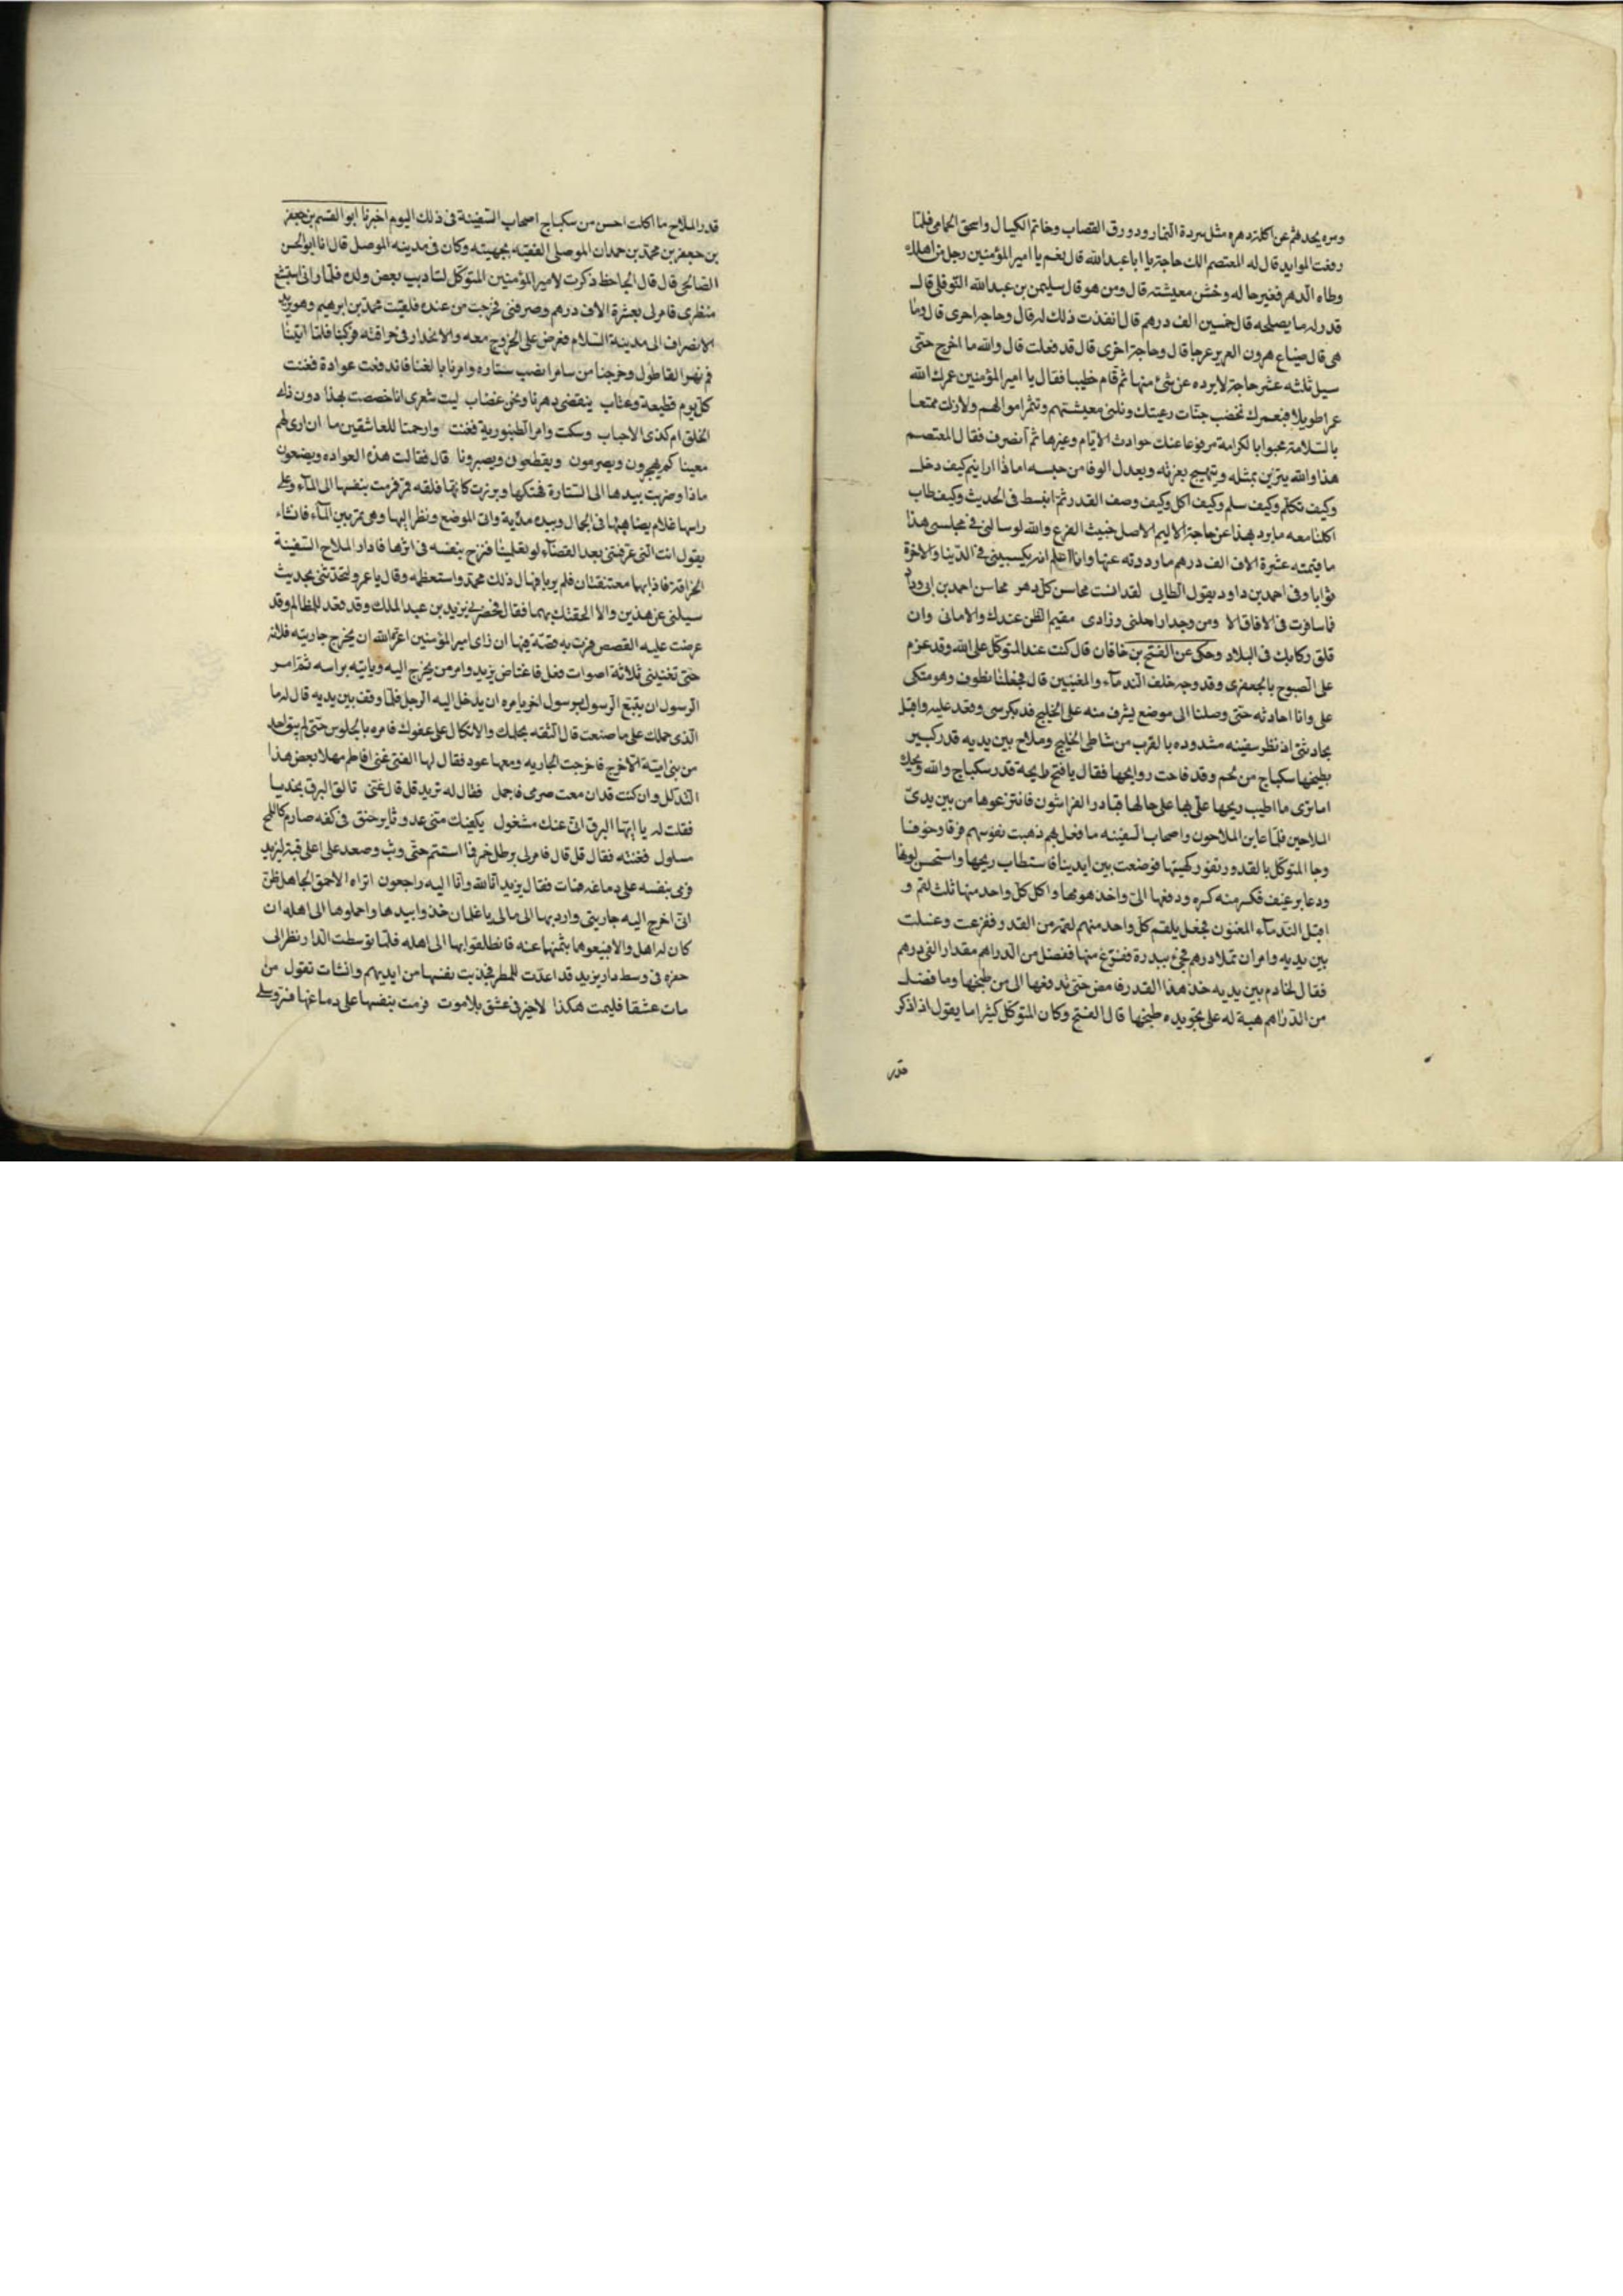 وسره يحدثهم عن اكلة دهره مثل سردة التمار ودورق القصاب وخاتم الكيال واسحق الحمامى فلما
رفعت الموايد قال له المعتصم الك حاجة يا ابا عبد الله قال نعم يا امير المؤمنين رجل من اهلك
وطاه الدهر فغير حاله وخشن معيشته قال ومن هو قال سليمن بن عبد الله النوفلى قال
قدر له ما يصلحه قال خمسين الف درهم قال انفذت ذلك له قال وحاجة اخرى قال وما
هى قال ضياع هرون قال وحاجة اخرى قال قد فعلت قال والله ما اخرج حتى
سيل ثلثه عشر حاجة لا يرده عن شئ منها ثم قام خطيبا فقال يا امير المؤمنين عمرك الله
عمرا طويلا فبعمرك تخضب جنات رعيتك وتلين معيشتهم وتثمر اموالهم ولا زلت ممتعا
بالسلامة محبوا بالكرامة مرفوعا عنك حوادث الايام وغيرها ثم انصرف فقال المعتصم
هذا والله يتزين بمثله ويبتهج بقربه ويعدل الوفا من جنسه اما اذا رايتم كيف دخل
وكيف تكلم وكيف سلم وكيف اكل وكيف وصف القدر ثم انبسط فى الحديث وكيف طاب
اكلنا معه ما يرد هذا عن حاجة الا ليم الاصل خبيث الفرع والله لو سالنى فى مجلسى هذا
ما قيمته عشرة الاف الف درهم ما رددته عنها وانا اعلم انه يكسبنى فى الدنيا والاخرة
ثوابا وفى احمد بن داود يقول الطايى لقد انست محاسن كل دهر محاسن احمد بن ابى دواد
فما سافرت فى الافاق الا ومن وجدار احلتى وزادى مقيم الظن عندك والامانى وان
قلق ركابك فى البلاد وحكى عن الفتح بن خاقان قال كنت عند المتوكل على الله وقد عزم
على الصبوح بالجعفرى وقد وجه خلف الندماء والمغنيين قال فجعلنا نطوف وهو متكى
على وانا احادثه حتى وصلنا الى موضع يشرف منه على الخليج فدعا بكرسى وقعد عليه واقبل
يحادثنى اذ نظر سفينه مشدوده بالقرب من شاطى الخليج وملاح بين يديه قدر كبير
يطبخها سكباج من لحم وقد فاحت روايحها فقال يا فتح ريحة قدر سكباج والله ويحك
اما ترى ما اطيب ريحها على بها على حالها فبادر الفراشون فانتزعوها من بين يدى
الملاحين فلما عاين الملاحون واصحاب السفينه ما فعل بهم ذهبت نفوسهم فرقا وخوفا
وجا المتوكل بالقدر تفور كهيئتها فوضعت بين ايدينا فاستطاب ريحها واستحسن لونها
ودعا برغيف فكسر منه كسره ودفعها الى واخذ هو مثلها واكل كل واحد منها ثلث لقم و
اقبل الندماء المغنون فجعل يلقم كل واحد منهم لقمة من القدر ففرغت وغسلت
بين يديه وامر ان تملا درهم فجئ ببدرة ففرغ منها ففضل من الدراهم مقدار الفى درهم
فقال لخادم بين يديه خذ هذا القدر فامض حتى تدفعها الى من طبخها وما فضل
من الدراهم هبة له على تجويده طبخها قال الفتح وكان المتوكل كثيرا ما يقول اذا ذكر
قدر
قدر الملاح ما اكلت احسن من سكباج اصحاب السفينة فى ذلك اليوم اخبرنا ابو القسم بن جعفر
بن جعفر بن محمد بن حمدان الموصلى الفقيه وكان فى مدينه الموصل قال انا ابو الحسن
الصالحى قال قال الجاحظ ذكرت لامير المؤمنين المتوكل لتاديب بعض ولده فلما رانى استبشع
منظرى فامر لى بعشرة الاف درهم وصرفنى فخرجت من عنده فلقيت محمد بن ابرهيم وهو يريد
الانصراف الى مدينة السلام فعرض على الخروج معه والانحدار فى حراقته فركبنا فلما اتينا
فم نهر القاطول وخرجنا من سامرا نصب ستاره وامرنا بالغنا فاندفعت عوادة فغنت
كل يوم قطيعة وعتاب ينقضى دهرنا ونحن غضاب ليت شعرى انا خصصت بهذا دون ذا
الخلق ام كذى الاحباب وسكت وامر الطنبورية فغنت وارحمتا للعاشقين ما ان ارى لهم
معينا كم يهجرون ويصرمون ويقطعون ويصبرونا قال فقالت هذه العواده ويصنعون
ماذا وضربت بيدها الى الستارة فهتكها وبرزت كانها فلقه قمر فرمت بنفسها الى الماء وعلى
راسها غلام يضاهيها فى الجمال وبيده مذبة واتى الموضع ونظر اليها وهى تمر بين الماء فانشاء
يقول انت التى غرقتنى بعد القضاء لو تعلمينا فزج بنفسه فى اثرها فادار الملاح السفينة
الحراقة فاذا بهما معتنقتان فلم يريا فهال ذلك محمد واستعظمه وقال يا عمرو لتحدثنى بحديث
سيلنى عن هذين والا الحقتك بهما فقال فحضرنى يزيد بن عبد الملك وقد قعد للمظالم وقد
عرضت عليه القصص فمرت به قصة فيها ان راى امير المؤمنين اعزه الله ان يخرج جاريته فلانه
حتى تغنينى ثلاثة اصوات فعل فاغتاض يزيد وامر من يخرج اليه وياتيه براسه ثم امر
الرسول ان يتبع الرسول برسول اخر يامره ان يدخل اليه الرجل فلما وقف بين يديه قال له ما
الذى حملك على ما صنعت قال الثقه بحلمك والاتكال على عفوك فامره بالجلوس حتى لم يبق احد
من بنى امية الا خرج فاخرجت الجاريه ومعها عود فقال لها الفتى غنى افاطم مهلا بعض هذا
التدلل وان كنت قد ازمعت صرمى فاجمل فقال له يزيد قل قال غنى تالق البرق نجديا
فقلت له يا ايها البرق انى عنك مشغول يكفيك منى عدو ثاير حنق فى كفه صارم كالملح
مسلول فغنته فقال قل قال فامر لى برطل خمر فما استتم حتى وثب وصعد على اعلى قبة ليزيد
فرمى بنفسه على دماغه فمات فقال يزيد انا لله وانا اليه راجعون اتراه الاحمق الجاهل ظن
انى اخرج اليه جاريتى واردها الى مالى يا غلمان خذوا بيدها واحملوها الى اهله ان
كان له اهل والا فبيعوها بثمنها عنه فانطلقوا بها الى اهله فلما توسطت الدار نظر الى
حفره فى وسط دار يزيد قد اعدت للمطر فجذبت نفسها من ايديهم وانشات تقول من
مات عشقا فليمت هكذا لا خير فى عشق بلا موت فرمت بنفسها على دماغها فتروى على